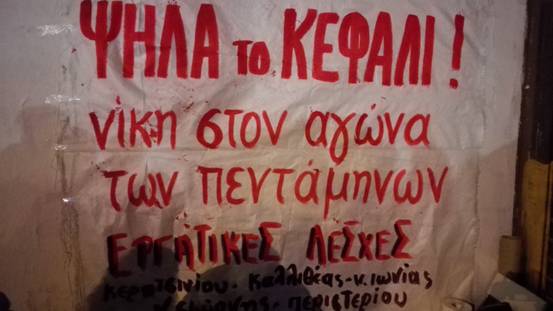 ΨΗΛΑ το ΚΕΦΑΛΙ!
νίκη στον αγώνα
των πεντάμηνων
ΕΡΓΑΤΙΚΕΣ ΛΕΣΧΕΣ
κερατσινίου-καλλιθέας-ν.ιωνίας
ν.σμύρνης-περιστερίου